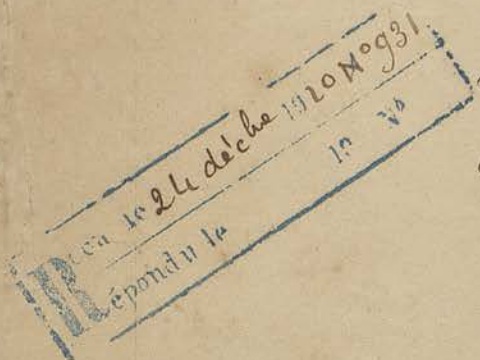 Reçu le 24 déc̄bre 1920 N° 931
Répondu le 19 N°